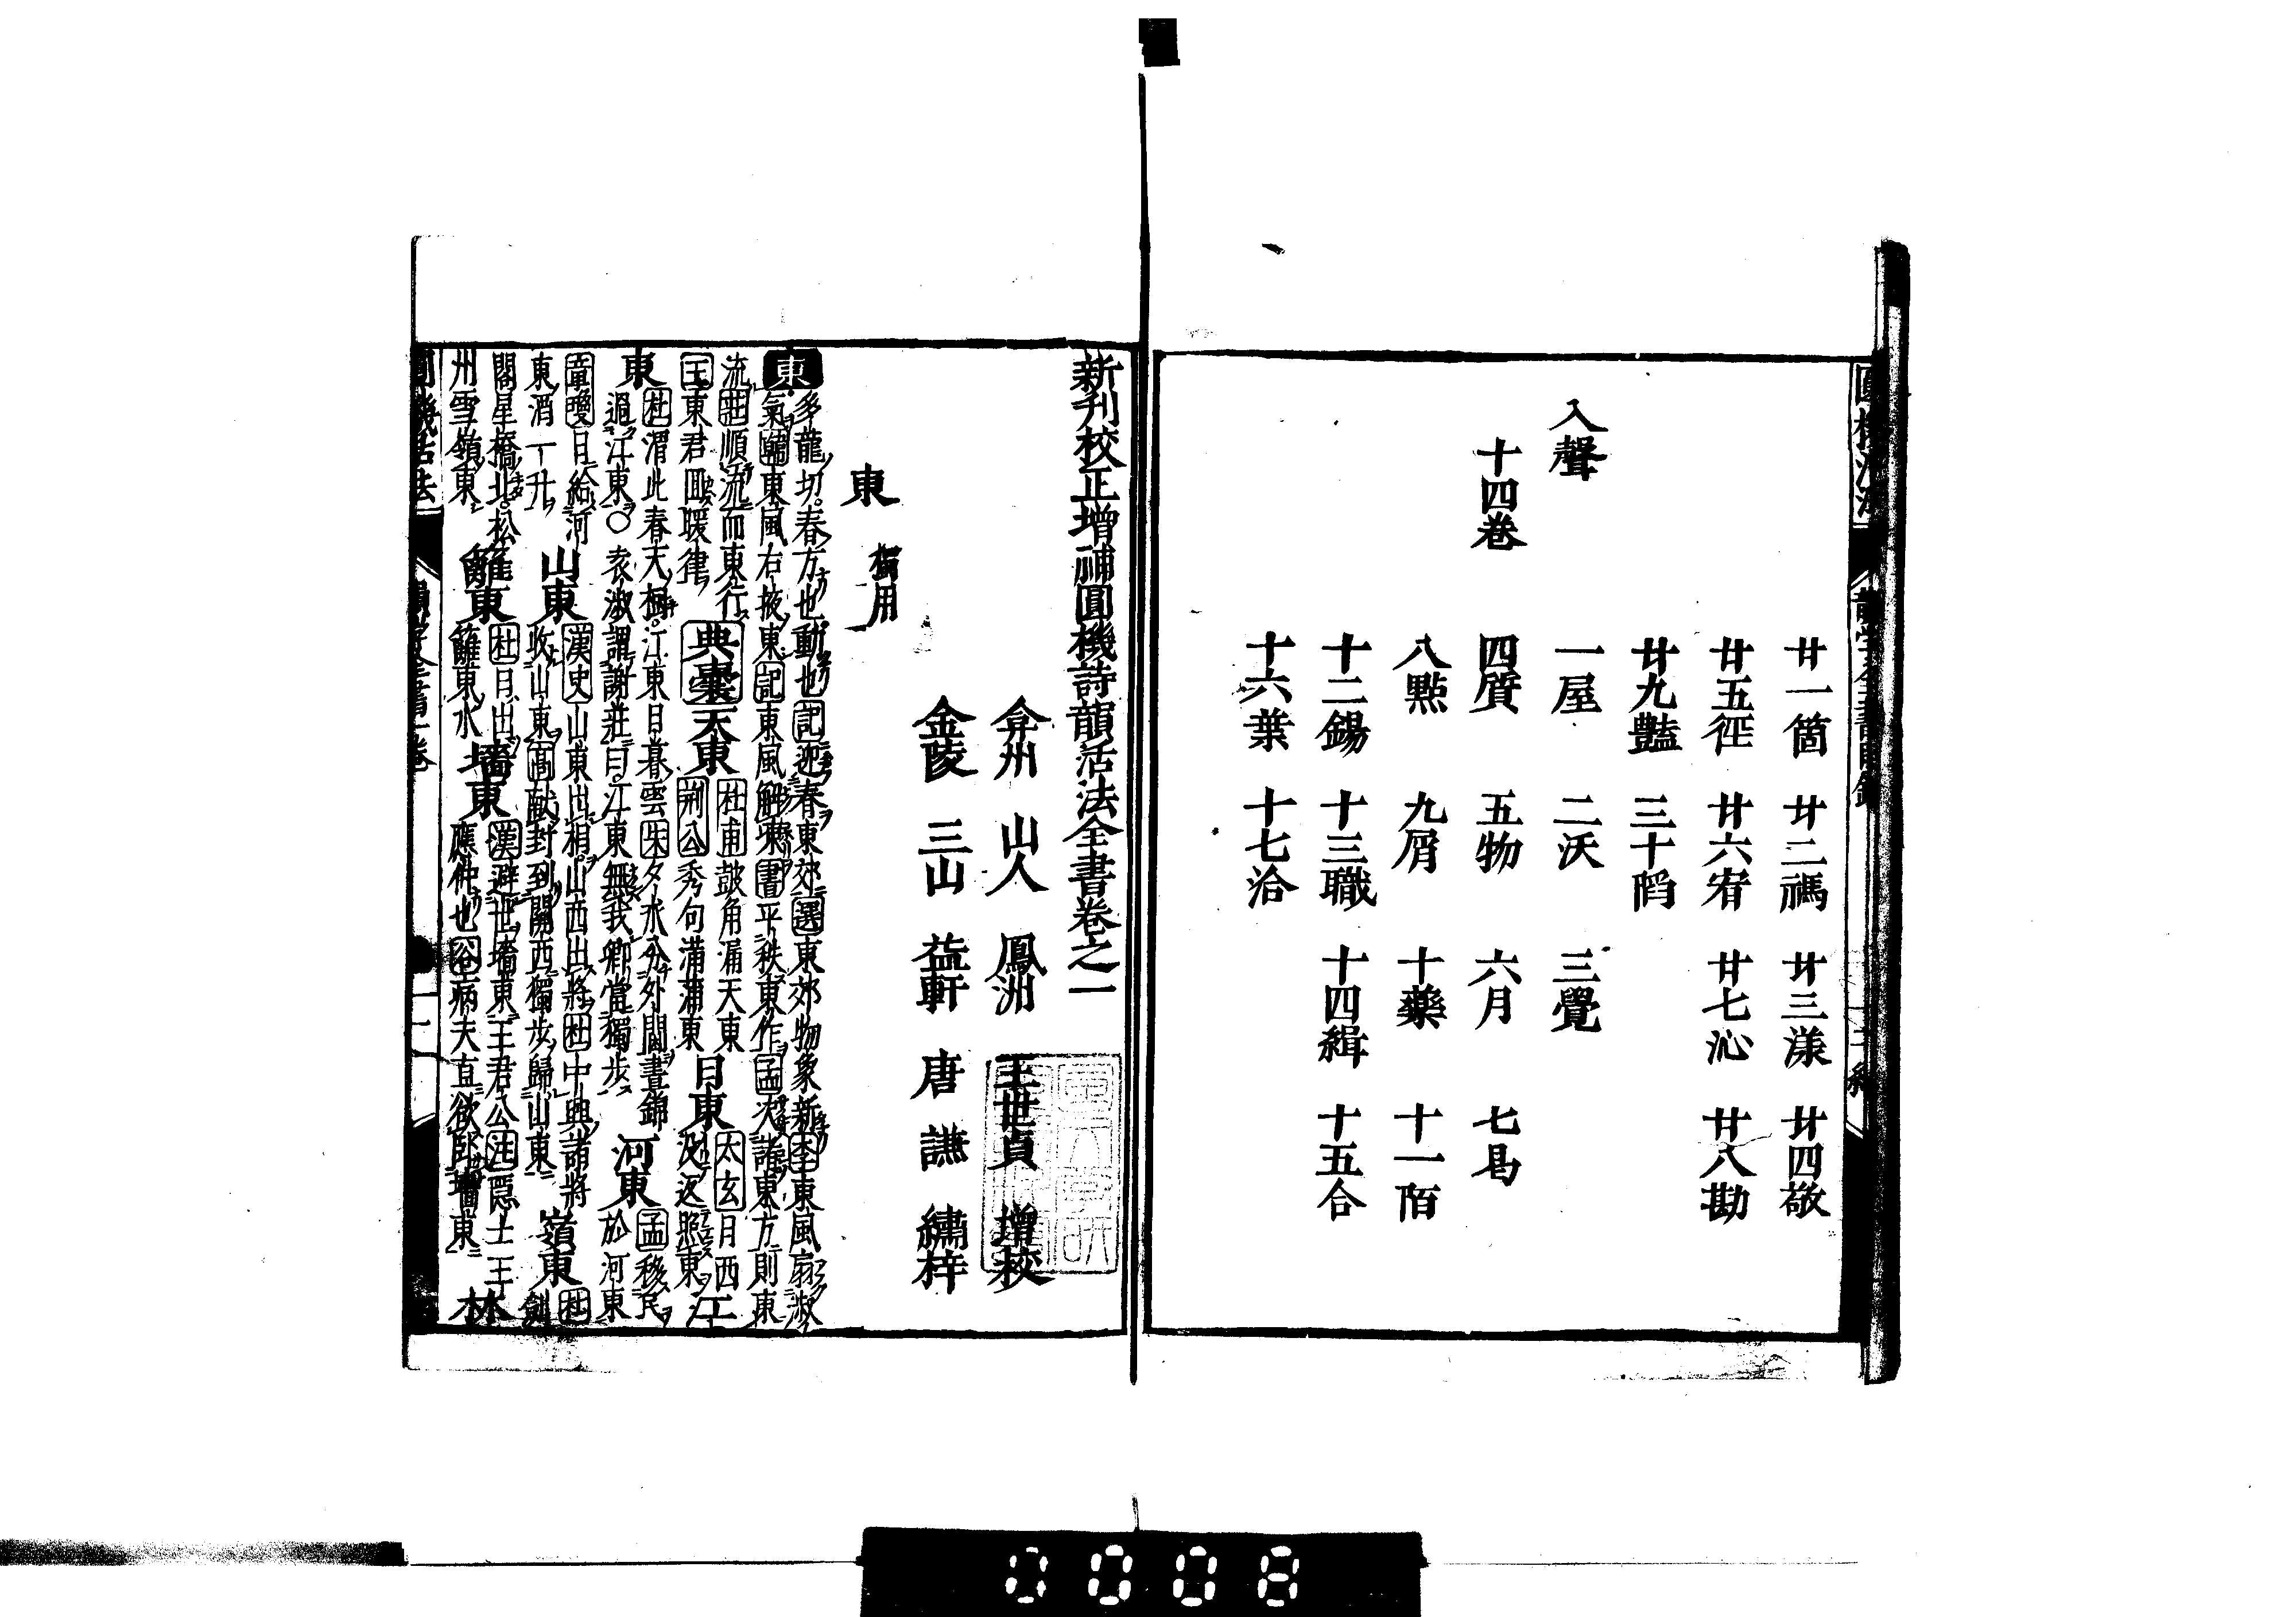 廿一箇 廿二禡 廿三漾 廿四敬
廿五徑 廿六宥 廿七沁 廿八勘
廿九豔 三十䧟
入聲
一屋 二沃 三覺
十四卷
四質 五物 六月 七曷
八黠 九屑 十藥 十一陌
十二錫 十三職 十四緝 十五合
十六葉 十七洽
新刊校正增補圓機詩韻活法全書卷之一
弇州 山人 鳳洲 王世貞 增校
金陵 三山 益軒 唐 謙 繡梓
東 獨用
東
多龍切春方也動也記迎春東郊選東郊物象新李東風扇淑
氣東風右掖東記東風解凍書平秩東作孟決諸東方則東
流莊順流而東行
王東君回暖律
典彙
天東
杜甫鼓角漏天東
荊公秀句滿蒲東
日東
太玄月西
沒返照東
江
東
杜渭北春天樹江東日暮雲朱夕水分外閭晝錦
過江東〇袁淑謂謝莊曰江東無我卿當獨步
河東
孟移民
於河東
章曖日給河
東酒一升
山東
漢史山東出相山西出將杜中興諸將
收山東高獻封到關西獨步歸山東
嶺東
杜劍
閣星橋北松
州雪嶺東
籬東
杜日出
籬東水
墻東
漢避世墻東王君公注隱士王
應仲也谷病夫直欲臥墻東
林
0008